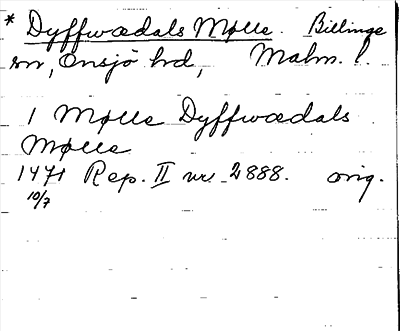 * Dyffwædals Mølle. Billinge
sn, Onsjö hd, Malm. l.
1 Mølle Dyffwædals
Mølle
1471 Rep. II nr 2888. orig.
10/7